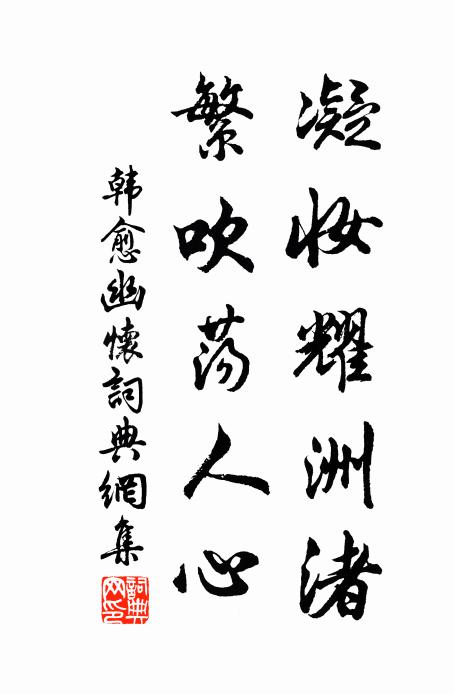 凝妆耀洲渚
繁吹荡人心
韩愈幽懷詞典網集
詞典網印